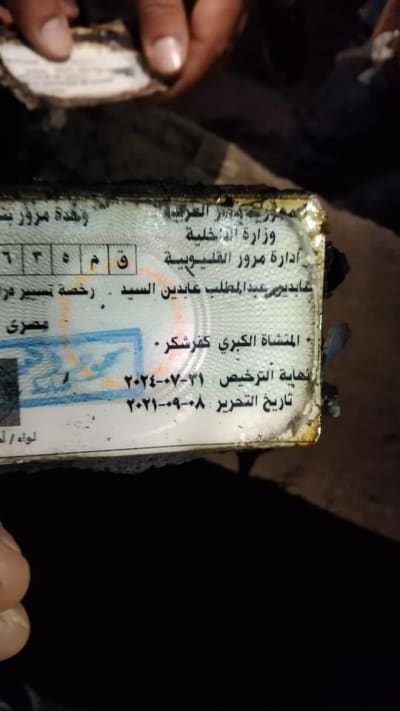 جمهورية مصر العربية وحدة مرور
وزارة الداخلية
ادارة مرور القليوبية ق م ٥ ٣ ٦
عابدين عبدالمطلب عابدين السيد رخصة تسيير
مصرى
المنشاة الكبري كفرشكر
نهاية الترخيص ٣١-٠٧-٢٠٢٤
تاريخ التحرير ٠٨-٠٩-٢٠٢١
لواء /